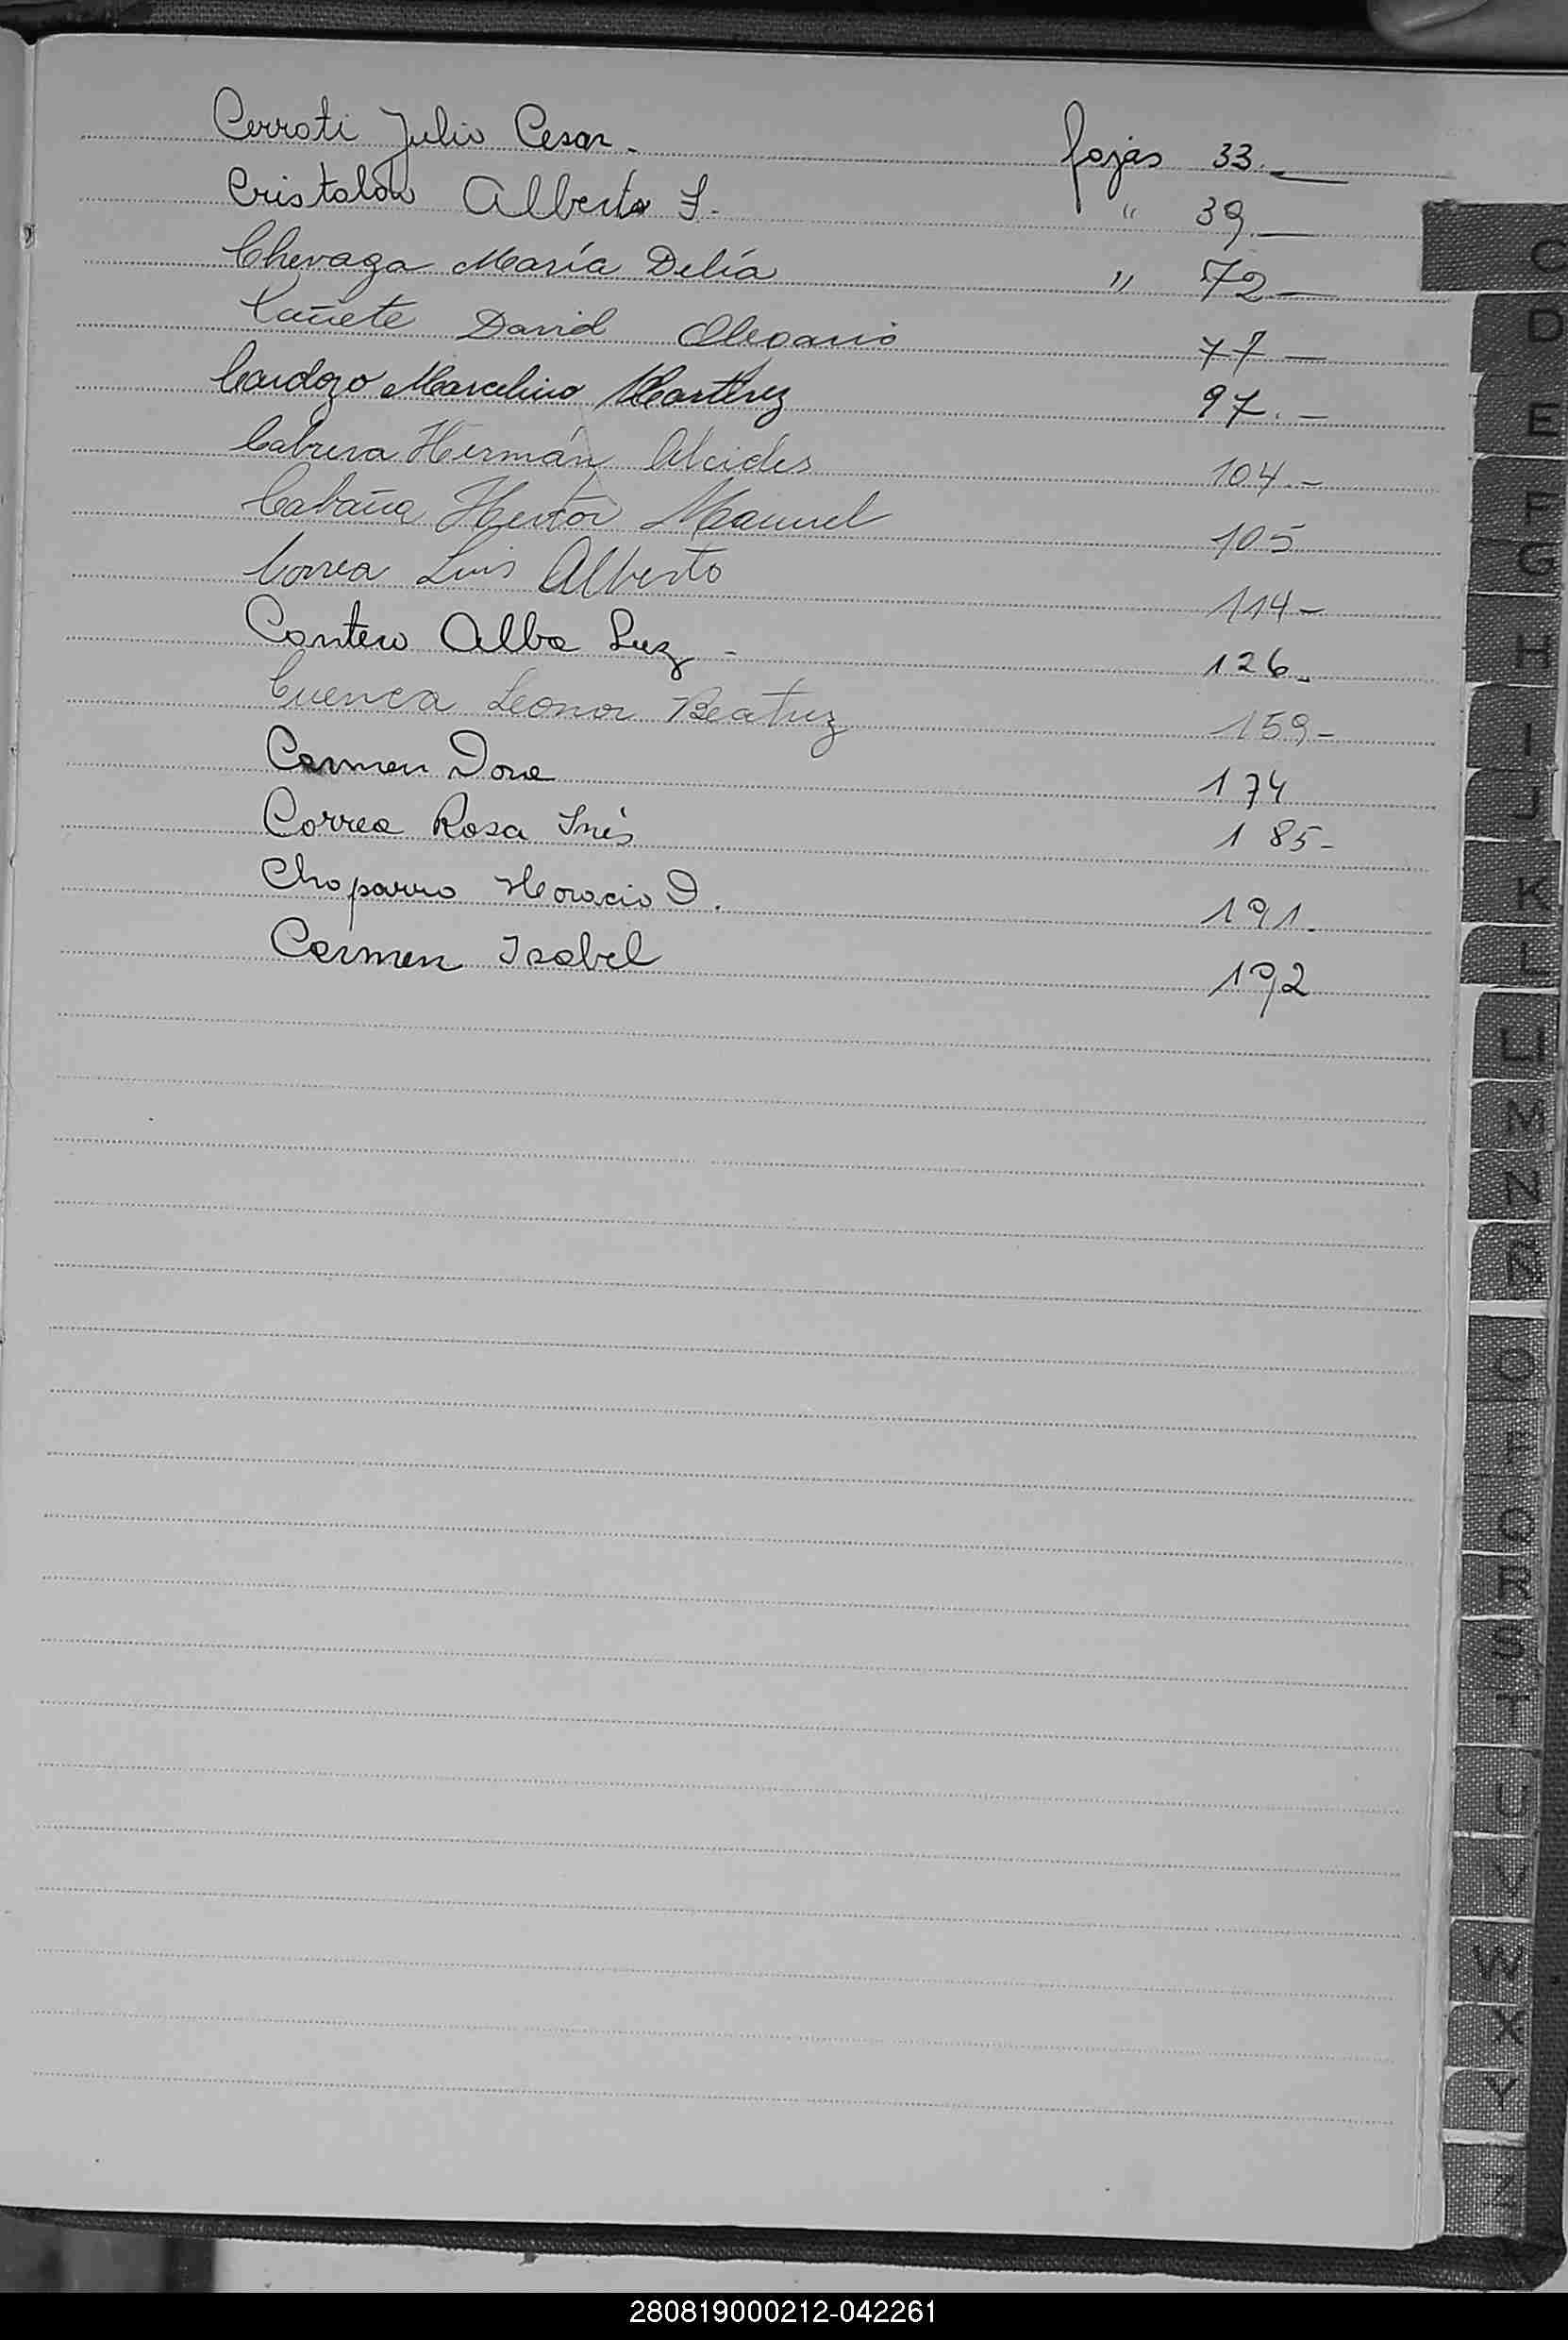 Cerrati Julio Cesar. fojas 33.—
Cristaldo Alberto S. " 39.—
Chevaga María Delia " 72—
Cañete David Olegario 77—
Cardozo Marcelino Martínez 97.—
Cabrera Hermán Alcides 104.—
Cabaña Hector Manuel 105
Correa Luis Alberto 114—
Cantero Alba Luz - 126-
Cuenca Leonor Beatriz 159-
Carmen Dora 174
Correa Rosa Inés 185-
Chaparro Horacio D. 191.
Carmen Isabel 192
C
D
E
F
G
H
I
J
K
L
LL
M
N
Ñ
O
P
Q
R
S
T
U
V
W
X
Y
Z
280819000212-042261